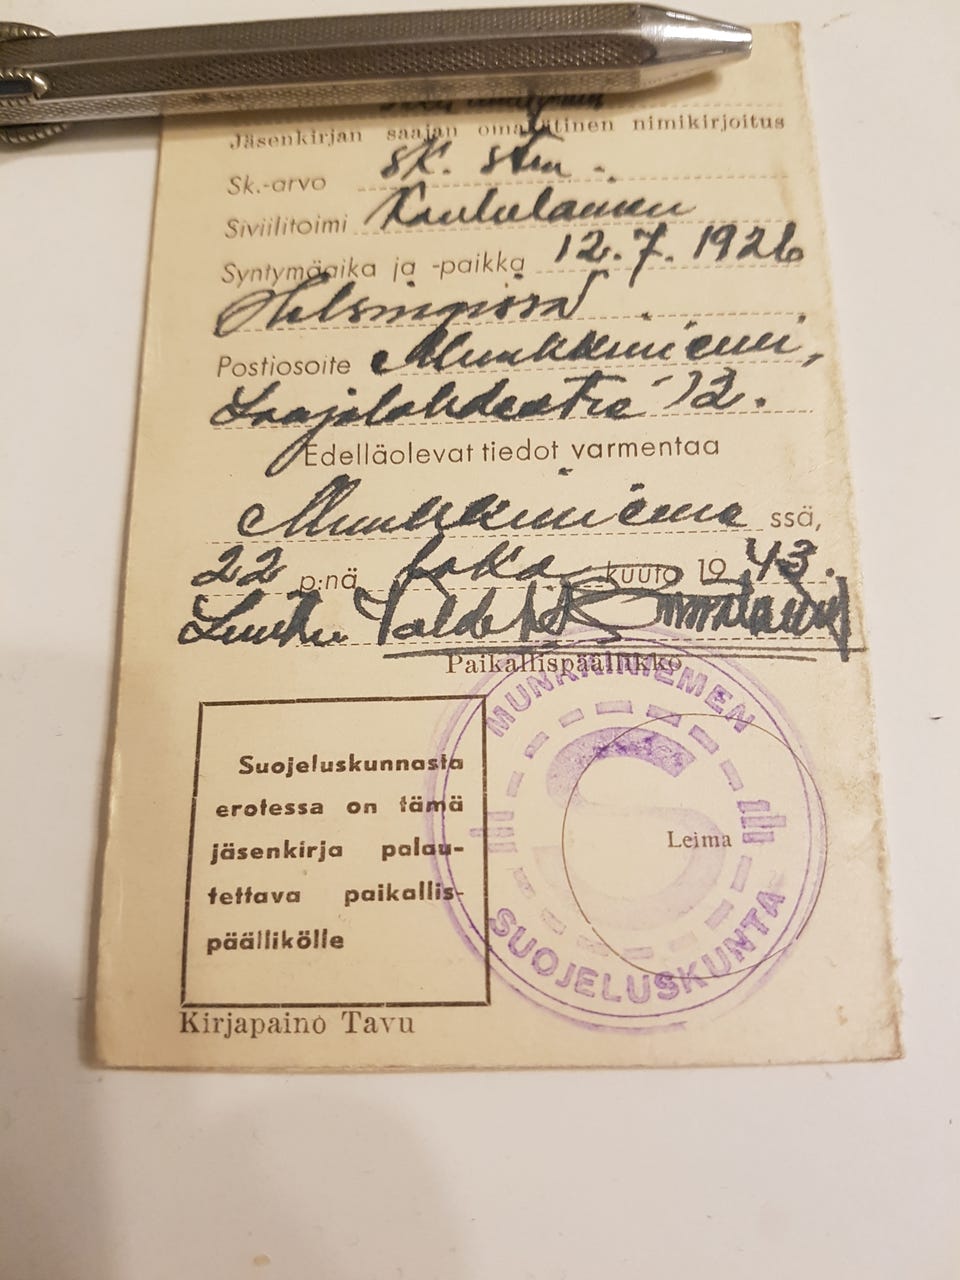 Jäsenkirjan saajan omakätinen nimikirjoitus
Sk.-arvo sk.
Siviilitoimi Koululainen
Syntymäaika ja -paikka 12.7.1926
Helsingissä
Postiosoite Munkkiniemi,
Laajalahdentie 12.
Edelläolevat tiedot varmentaa
Munkkinieme ssä,
22 p:nä loka kuuta 19 43.
Paikallispäällikkö
MUNKKINIEMEN
SUOJELUSKUNTA
S
Leima
Suojeluskunnasta
erotessa on tämä
jäsenkirja palau-
tettava paikallis-
päällikölle
Kirjapaino Tavu